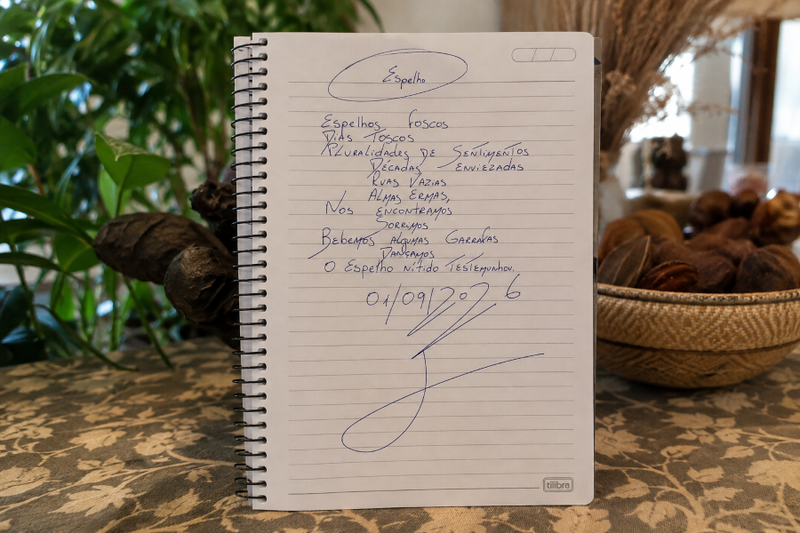 Espelho
Espelhos Foscos
Dias Toscos
Pluralidades de Sentimentos
Décadas Enviezadas
Ruas Vazias
Almas Ermas,
Nos encontramos
Sorrimos
Bebemos Algumas Garrafas
Dançamos
O Espelho nítido Testemunhou.
01/09/2026
tilibra